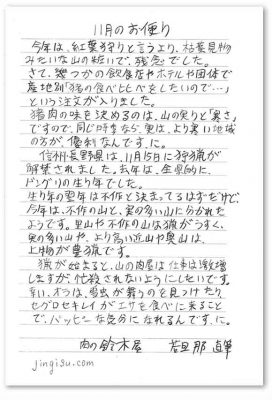 11月のお便り
今年は、紅葉狩りと言うより、枯葉見物
みたいな山の粧いで、残念でした。
さて、幾つかの飲食店やホテルや団体で
産地別「猪の食べ比べをしたいので…」
という注文が入りました。
猪肉の味を決めるのは、山の実りと「寒さ」
ですので、同じ時季なら、実は、より寒い地域
の方が、優利なんですに。
信州長野県は、11月15日に狩猟が
解禁されました。去年は、全県的に
ドングリの生り年でした。
生り年の翌年は不作と決まってるはずだけど、
今年は、不作の山と、実の多い山に分かれた
ようです。里山や不作の山は猟がうすく、
実の多い山や、より高い近山や奥山は、
上物が豊猟です。
猟が始まると、山の肉屋は仕事は激増
しますが、忙殺されないようにしたいです。
幸い、オラは、雪虫が舞うのを見つけたり、
セグロセキレイがエサを食べに来ること
で、ハッピーな気分になれるんですに。
肉の鈴木屋 若旦那 直筆
jingisu.com